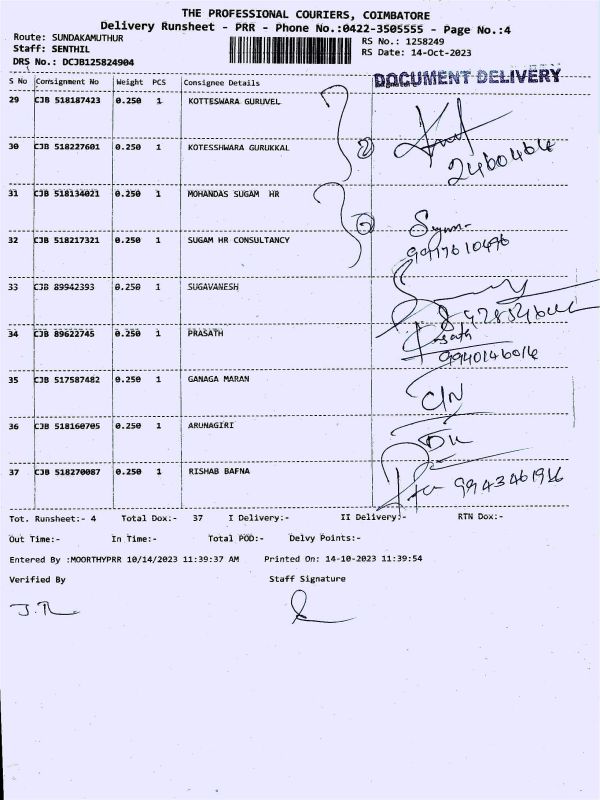 THE PROFESSIONAL COURIERS, COIMBATORE
Delivery Runsheet - PRR - Phone No.:0422-3505555 - Page No.:4
Route: SUNDAKAMUTHUR
Staff: SENTHIL
DRS No.: DCJB125824904
RS No.: 1258249
RS Date: 14-Oct-2023
S No Consignment No Weight PCS Consignee Details
DOCUMENT DELIVERY
29 CJB 518187423 0.250 1 KOTTESWARA GURUVEL
30 CJB 518227601 0.250 1 KOTESSHWARA GURUKKAL
2460464
31 CJB 518134021 0.250 1 MOHANDAS SUGAM HR
32 CJB 518217321 0.250 1 SUGAM HR CONSULTANCY
33 CJB 89942393 0.250 1 SUGAVANESH
34 CJB 89622745 0.250 1 PRASATH
35 CJB 517587482 0.250 1 GANAGA MARAN
C/N
36 CJB 518160705 0.250 1 ARUNAGIRI
37 CJB 518270087 0.250 1 RISHAB BAFNA
Tot. Runsheet:- 4 Total Dox:- 37 I Delivery:- II Delivery:- RTN Dox:-
Out Time:- In Time:- Total POD:- Delvy Points:-
Entered By :MOORTHYPRR 10/14/2023 11:39:37 AM Printed On: 14-10-2023 11:39:54
Verified By Staff Signature